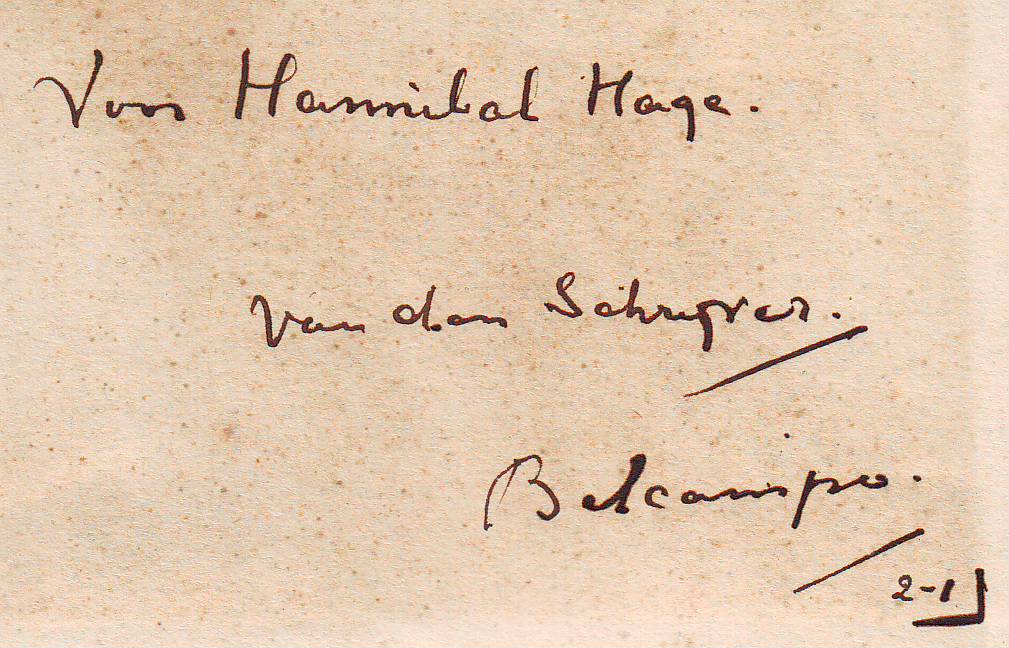 Voor Hannibal Hage.
van den Schrijver.
Belcampo.
2-1